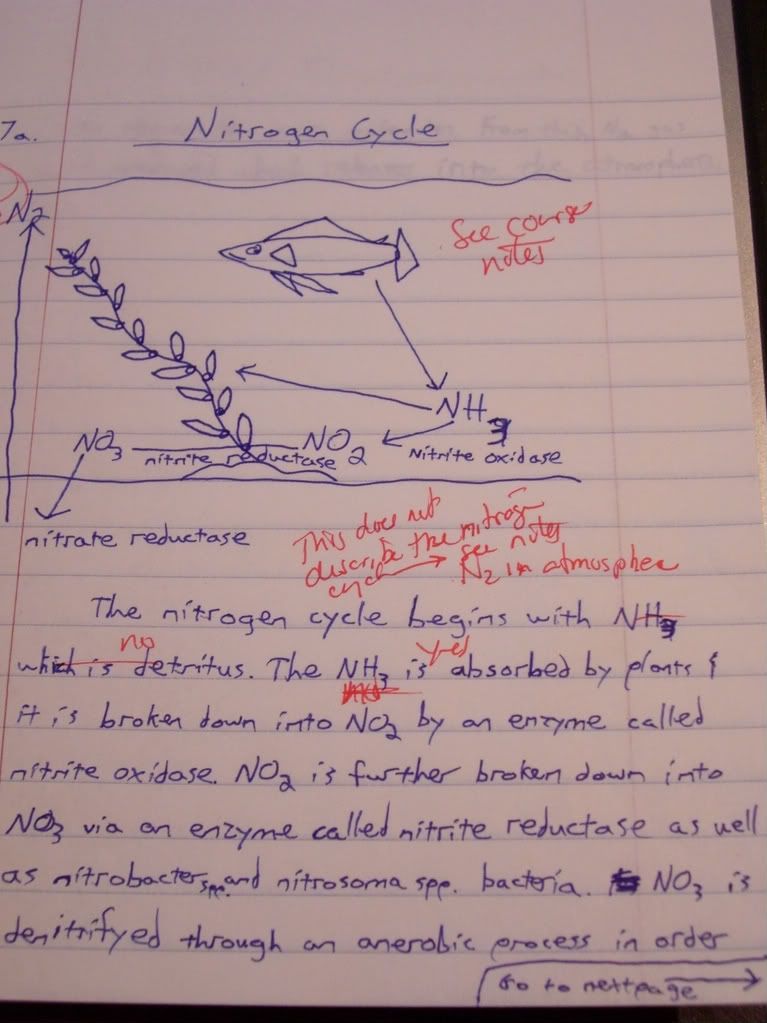 7a. Nitrogen Cycle
N2
See course
notes
NH3
NO3 NO2
nitrite reductase Nitrite oxidase
nitrate reductase
This does not
describe the nitrogen
cycle → see notes
N2 in atmosphere
The nitrogen cycle begins with NH3
no
which is detritus. The NH3 is absorbed by plants &
yes
it is broken down into NO2 by an enzyme called
nitrite oxidase. NO2 is further broken down into
NO3 via an enzyme called nitrite reductase as well
as nitrobacter spp. and nitrosoma spp. bacteria. NO3 is
denitrifyed through an anerobic process in order
Go to next page